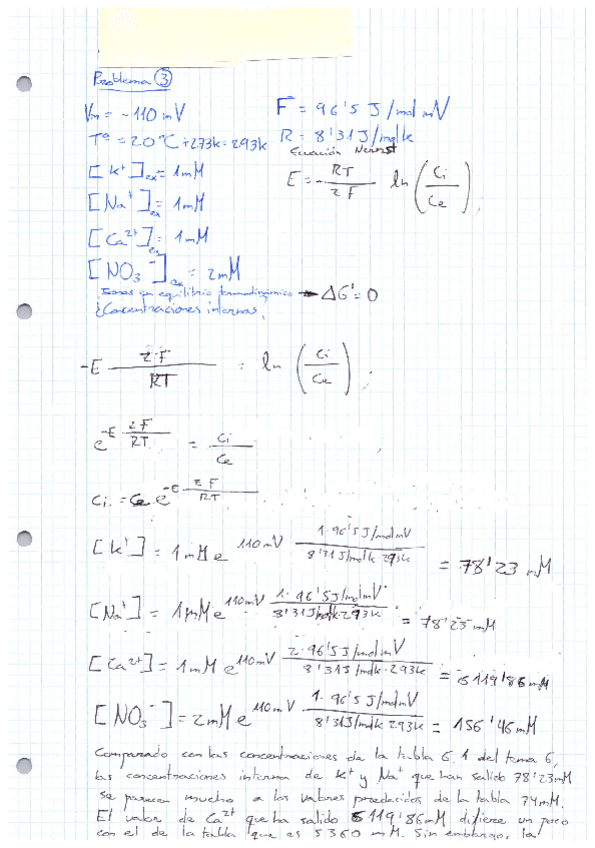 Problema ③
Vm = -110 mV
F = 96'5 J/mol mV
Tª = 20ºC + 273k = 293k
R = 8'31 J/mol k
Ecuación Nernst
E = - RT/zF ln (Ci/Ce)
[K⁺]ex = 1mM
[Na⁺]ex = 1mM
[Ca²⁺]ex = 1mM
[NO₃⁻]ex = 2mM
Iones en equilibrio termodinámico → ΔG' = 0
¿Concentraciones internas?
-E zF/RT = ln (Ci/Ce)
e^(-E zF/RT) = Ci/Ce
Ci = Ce e^(-E zF/RT)
[K⁺] = 1mM e^(110mV 1·96'5 J/molmV / 8'31J/molk 293k) = 78'23 mM
[Na⁺] = 1mM e^(110mV 1·96'5J/molmV / 8'31J/molk·293k) = 78'23 mM
[Ca²⁺] = 1mM e^(110mV 2·96'5J/molmV / 8'31J/molk·293k) = 6119'86 mM
[NO₃⁻] = 2mM e^(110mV 1·96'5 J/molmV / 8'31J/molk 293k) = 156'46 mM
Comparado con las concentraciones de la tabla 6.1 del tema 6,
las concentraciones interna de K⁺ y Na⁺ que han salido 78'23mM
se parecen mucho a los valores predecidos de la tabla 74mM.
El valor de Ca²⁺ que ha salido 6119'86mM difiere un poco
con el de la tabla que es 5360 mM. Sin embargo, la